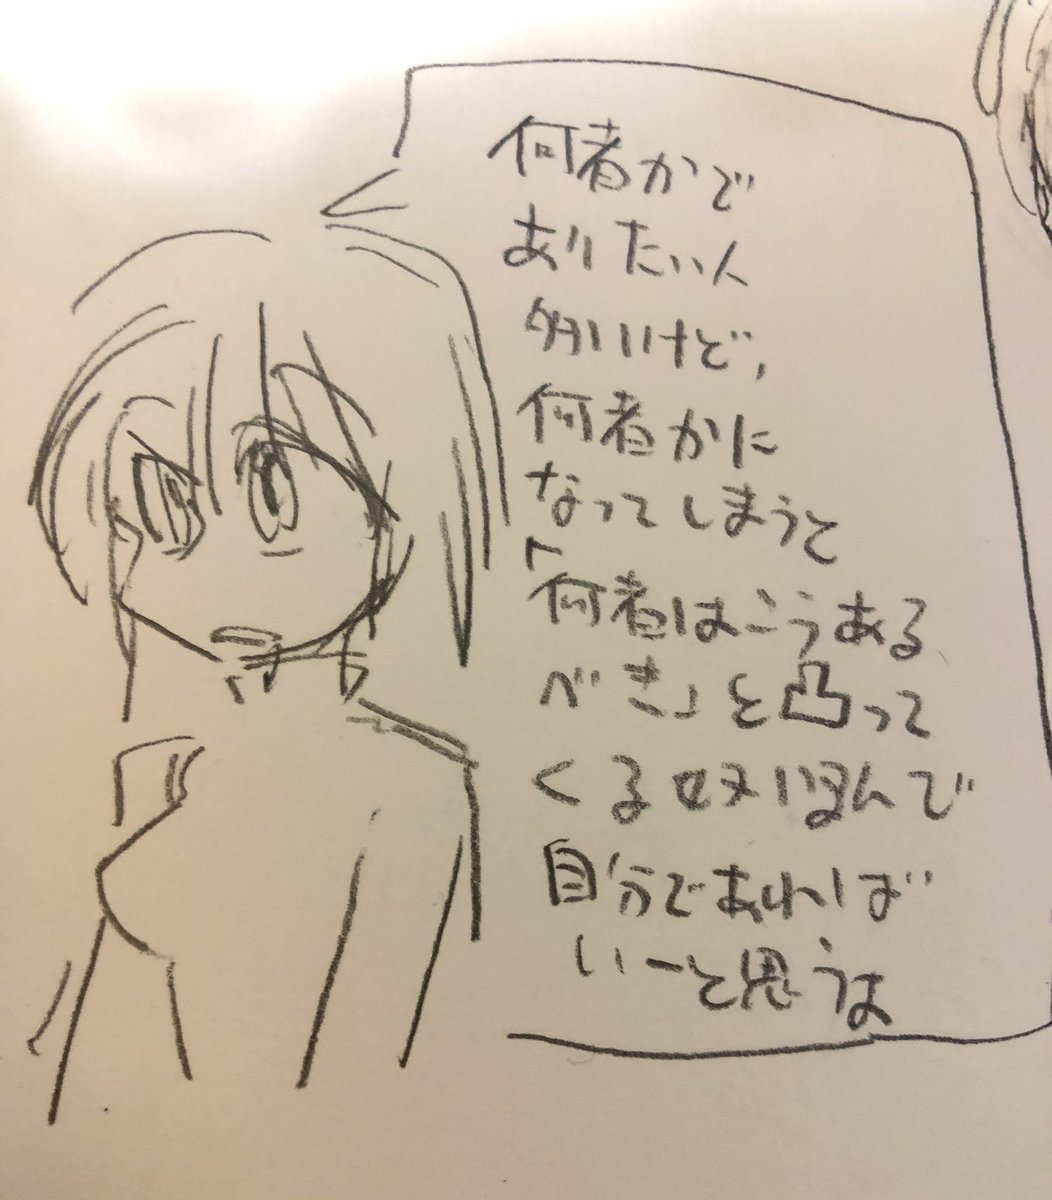 何者かで
ありたい人
多いけど,
何者かに
なってしまうと
「何者はこうある
べき」と凸って
くる奴
自分であれば
いーと思うよ